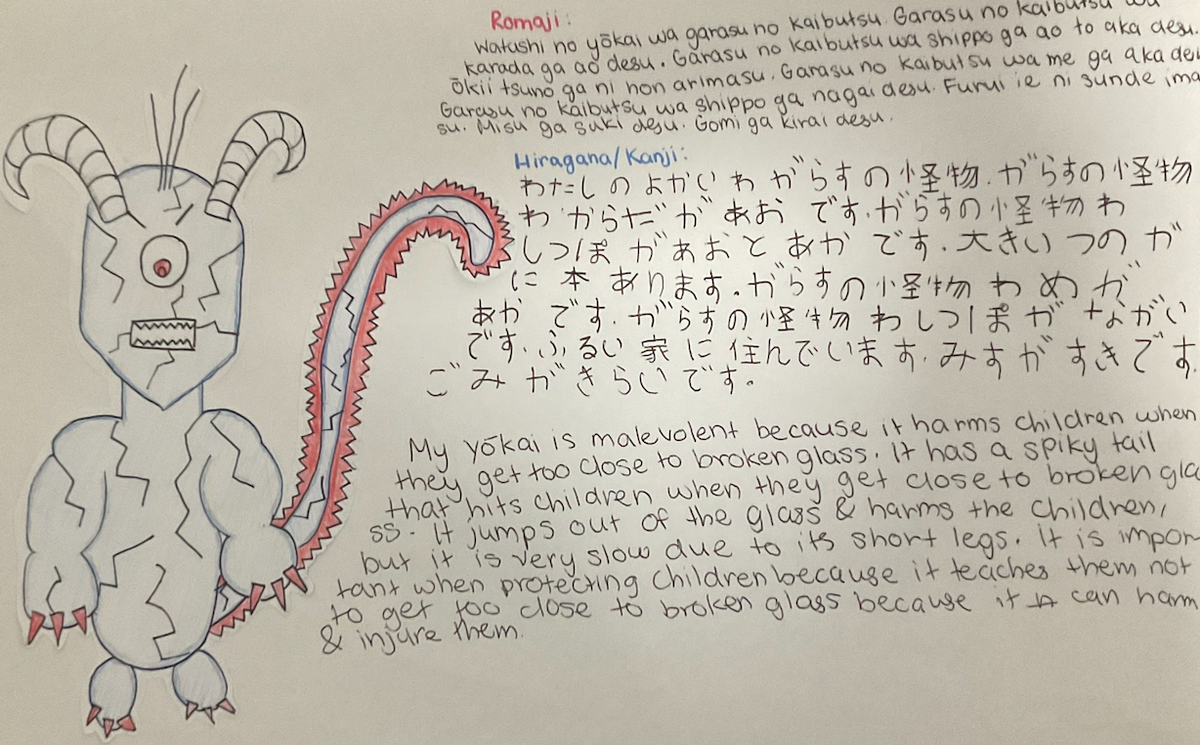 Romaji:
Watashi no yōkai wa garasu no kaibutsu. Garasu no kaibutsu wa
karada ga ao desu. Garasu no kaibutsu wa shippo ga ao to aka desu.
ōkii tsuno ga ni hon arimasu. Garasu no kaibutsu wa me ga aka desu
Garasu no kaibutsu wa shippo ga nagai desu. Furui ie ni sunde ima
su. Misu ga suki desu. Gomi ga kirai desu.
Hiragana/Kanji:
わたしのよかいわがらすの怪物.がらすの怪物
わからだがあおです.がらすの怪物わ
しつぽがあおとあかです.大きいつのが
に本あります.がらすの怪物わめが
あかです.がらすの怪物わしつぽがながい
です.ふるい家に住んでいます.みすがすきです.
ごみがきらいです。
My yōkai is malevolent because it harms children when
they get too close to broken glass. It has a spiky tail
that hits children when they get close to broken gla
ss. It jumps out of the glass & harms the children,
but it is very slow due to its short legs. It is impor
tant when protecting children because it teaches them not
to get too close to broken glass because it can harm
& injure them.